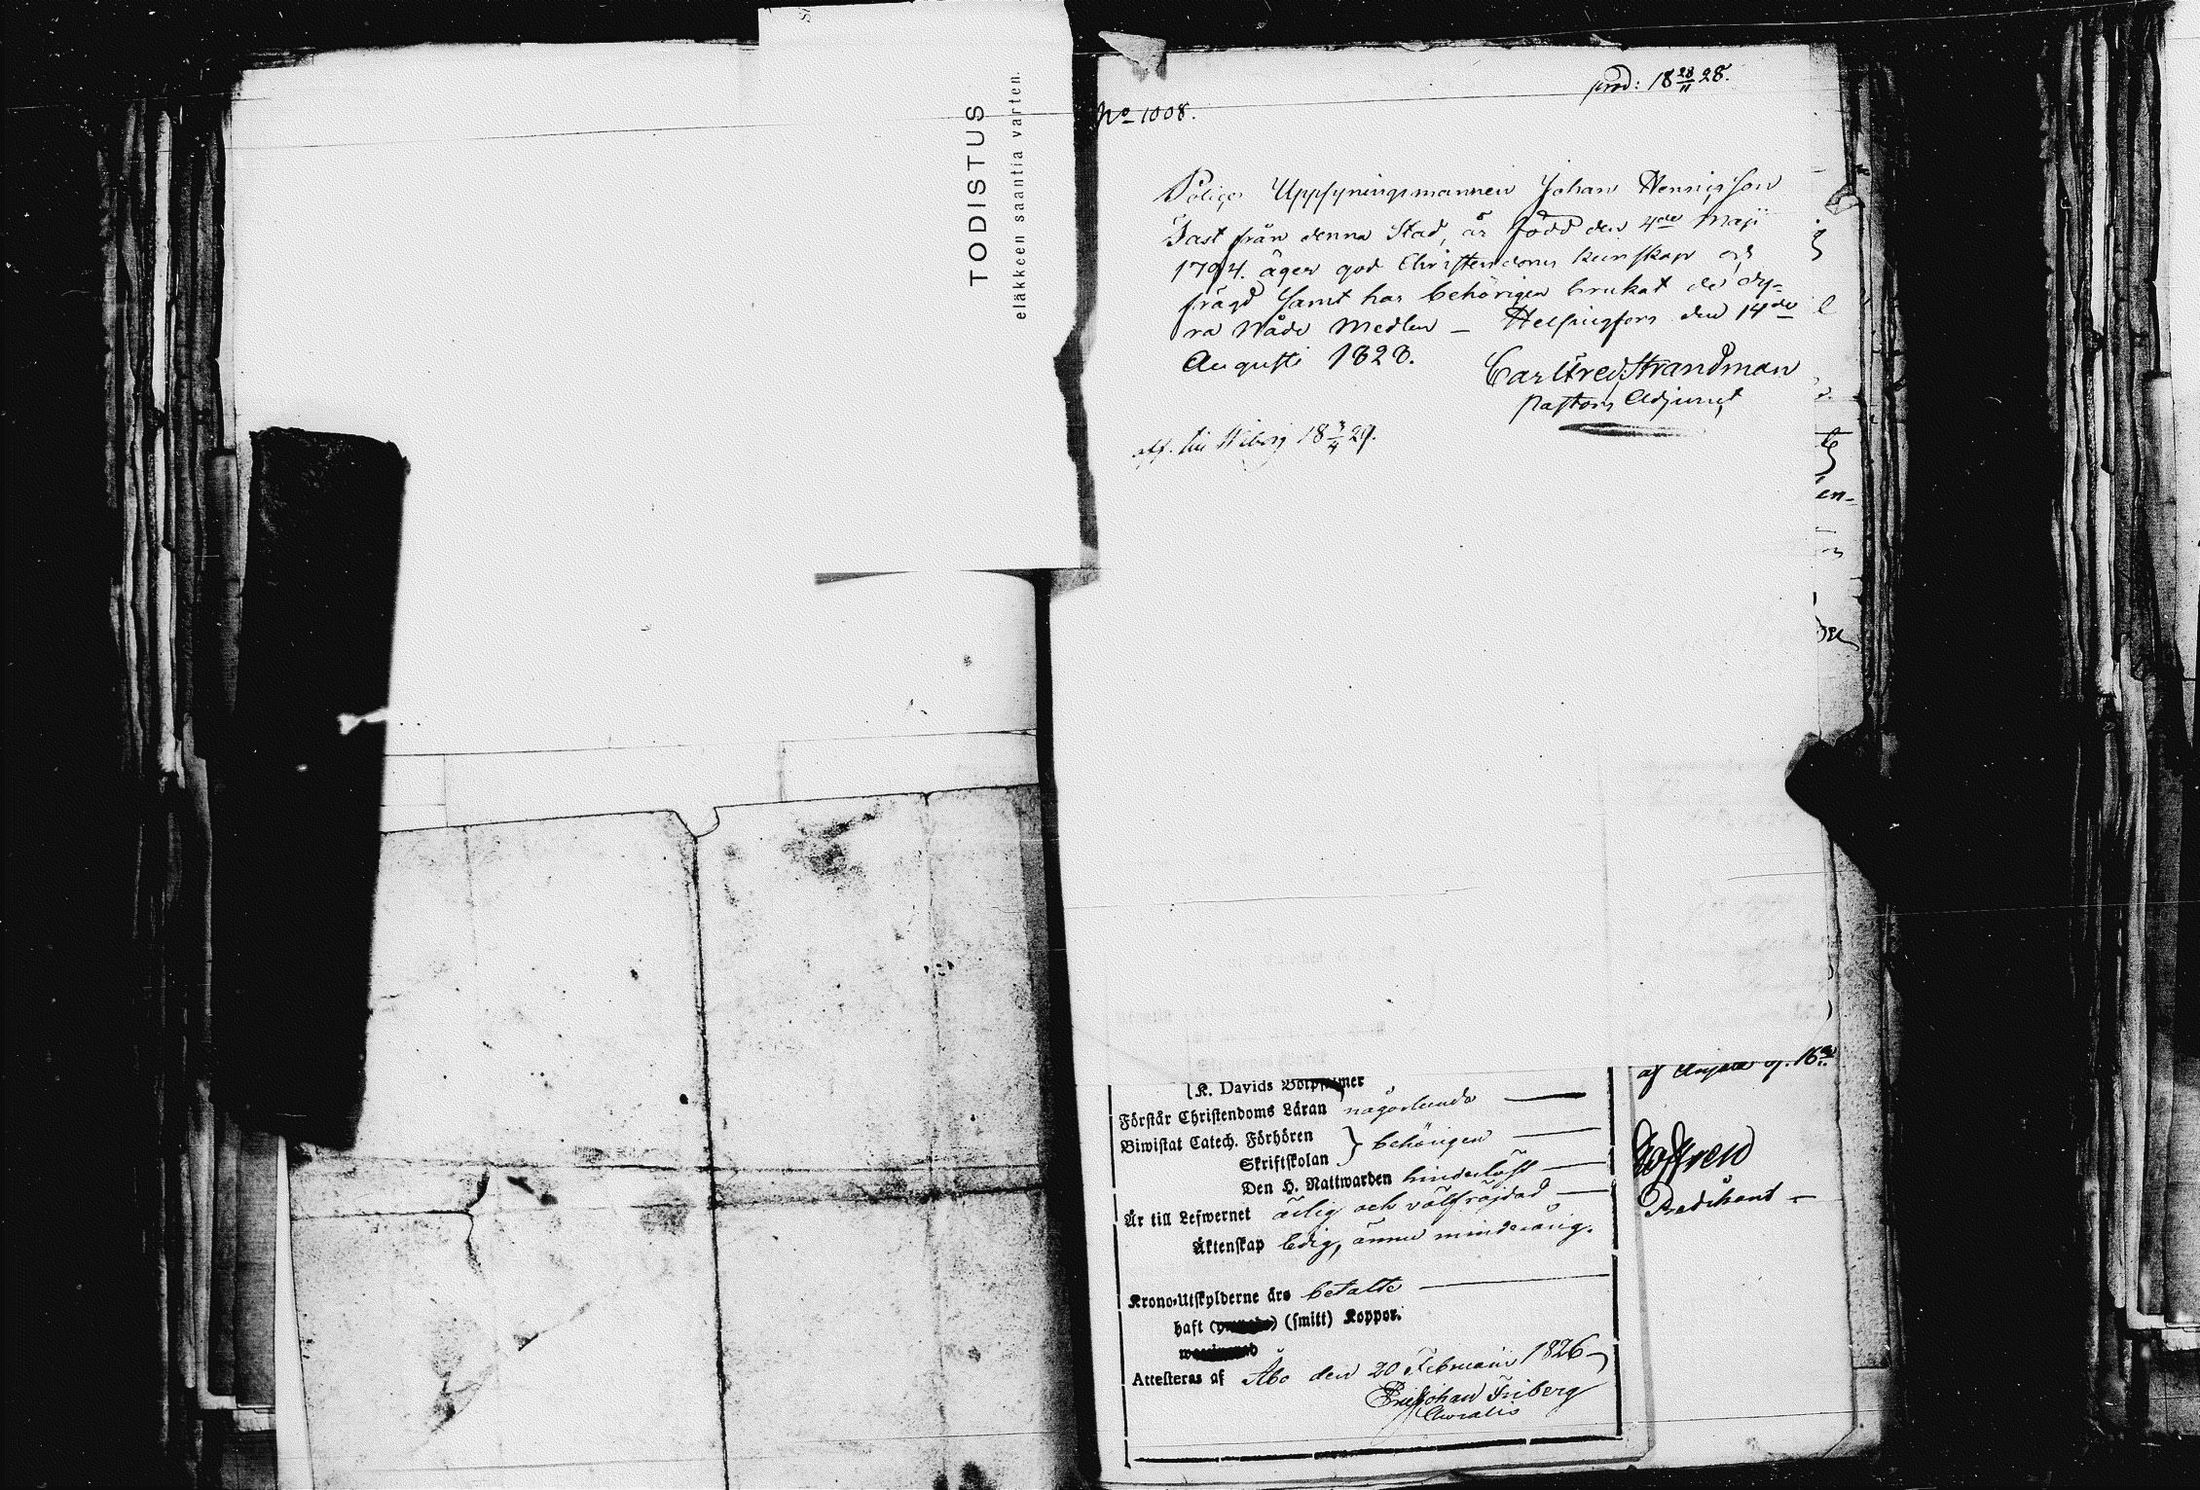 TODISTUS
eläkkeen saantia varten.
prod: 18 28/11 28.
No 1008.
Police Uppsyningsmannen Johan Hennigsson
Fast från denna Stad, är född den 4de Maji
1794. äger god Christendoms kunskap och
frägd samt har behörigen brukat de dy-
ra Nåde Medlen — Helsingfors den 14de
Augusti 1828.
Carl Fred. Strandman
Pastors Adjunct
aff. till Wiborg 18 3/4 29.
en-
K. Davids Botpsalmer
Förstår Christendoms Läran någorlunda
Biwistat Catech. Förhören
Skriftskolan } behörigen
Den H. Nattwarden hinderlöst
Är till Lefwernet ärlig och välfräjdad
Äktenskap ledig, ännu minderårig.
Krono-Utskylderne äro betalte
haft (smitt) Koppor.
Attesteras af Åbo den 20 Februarii 1826
Eric Johan Friberg
Predikant